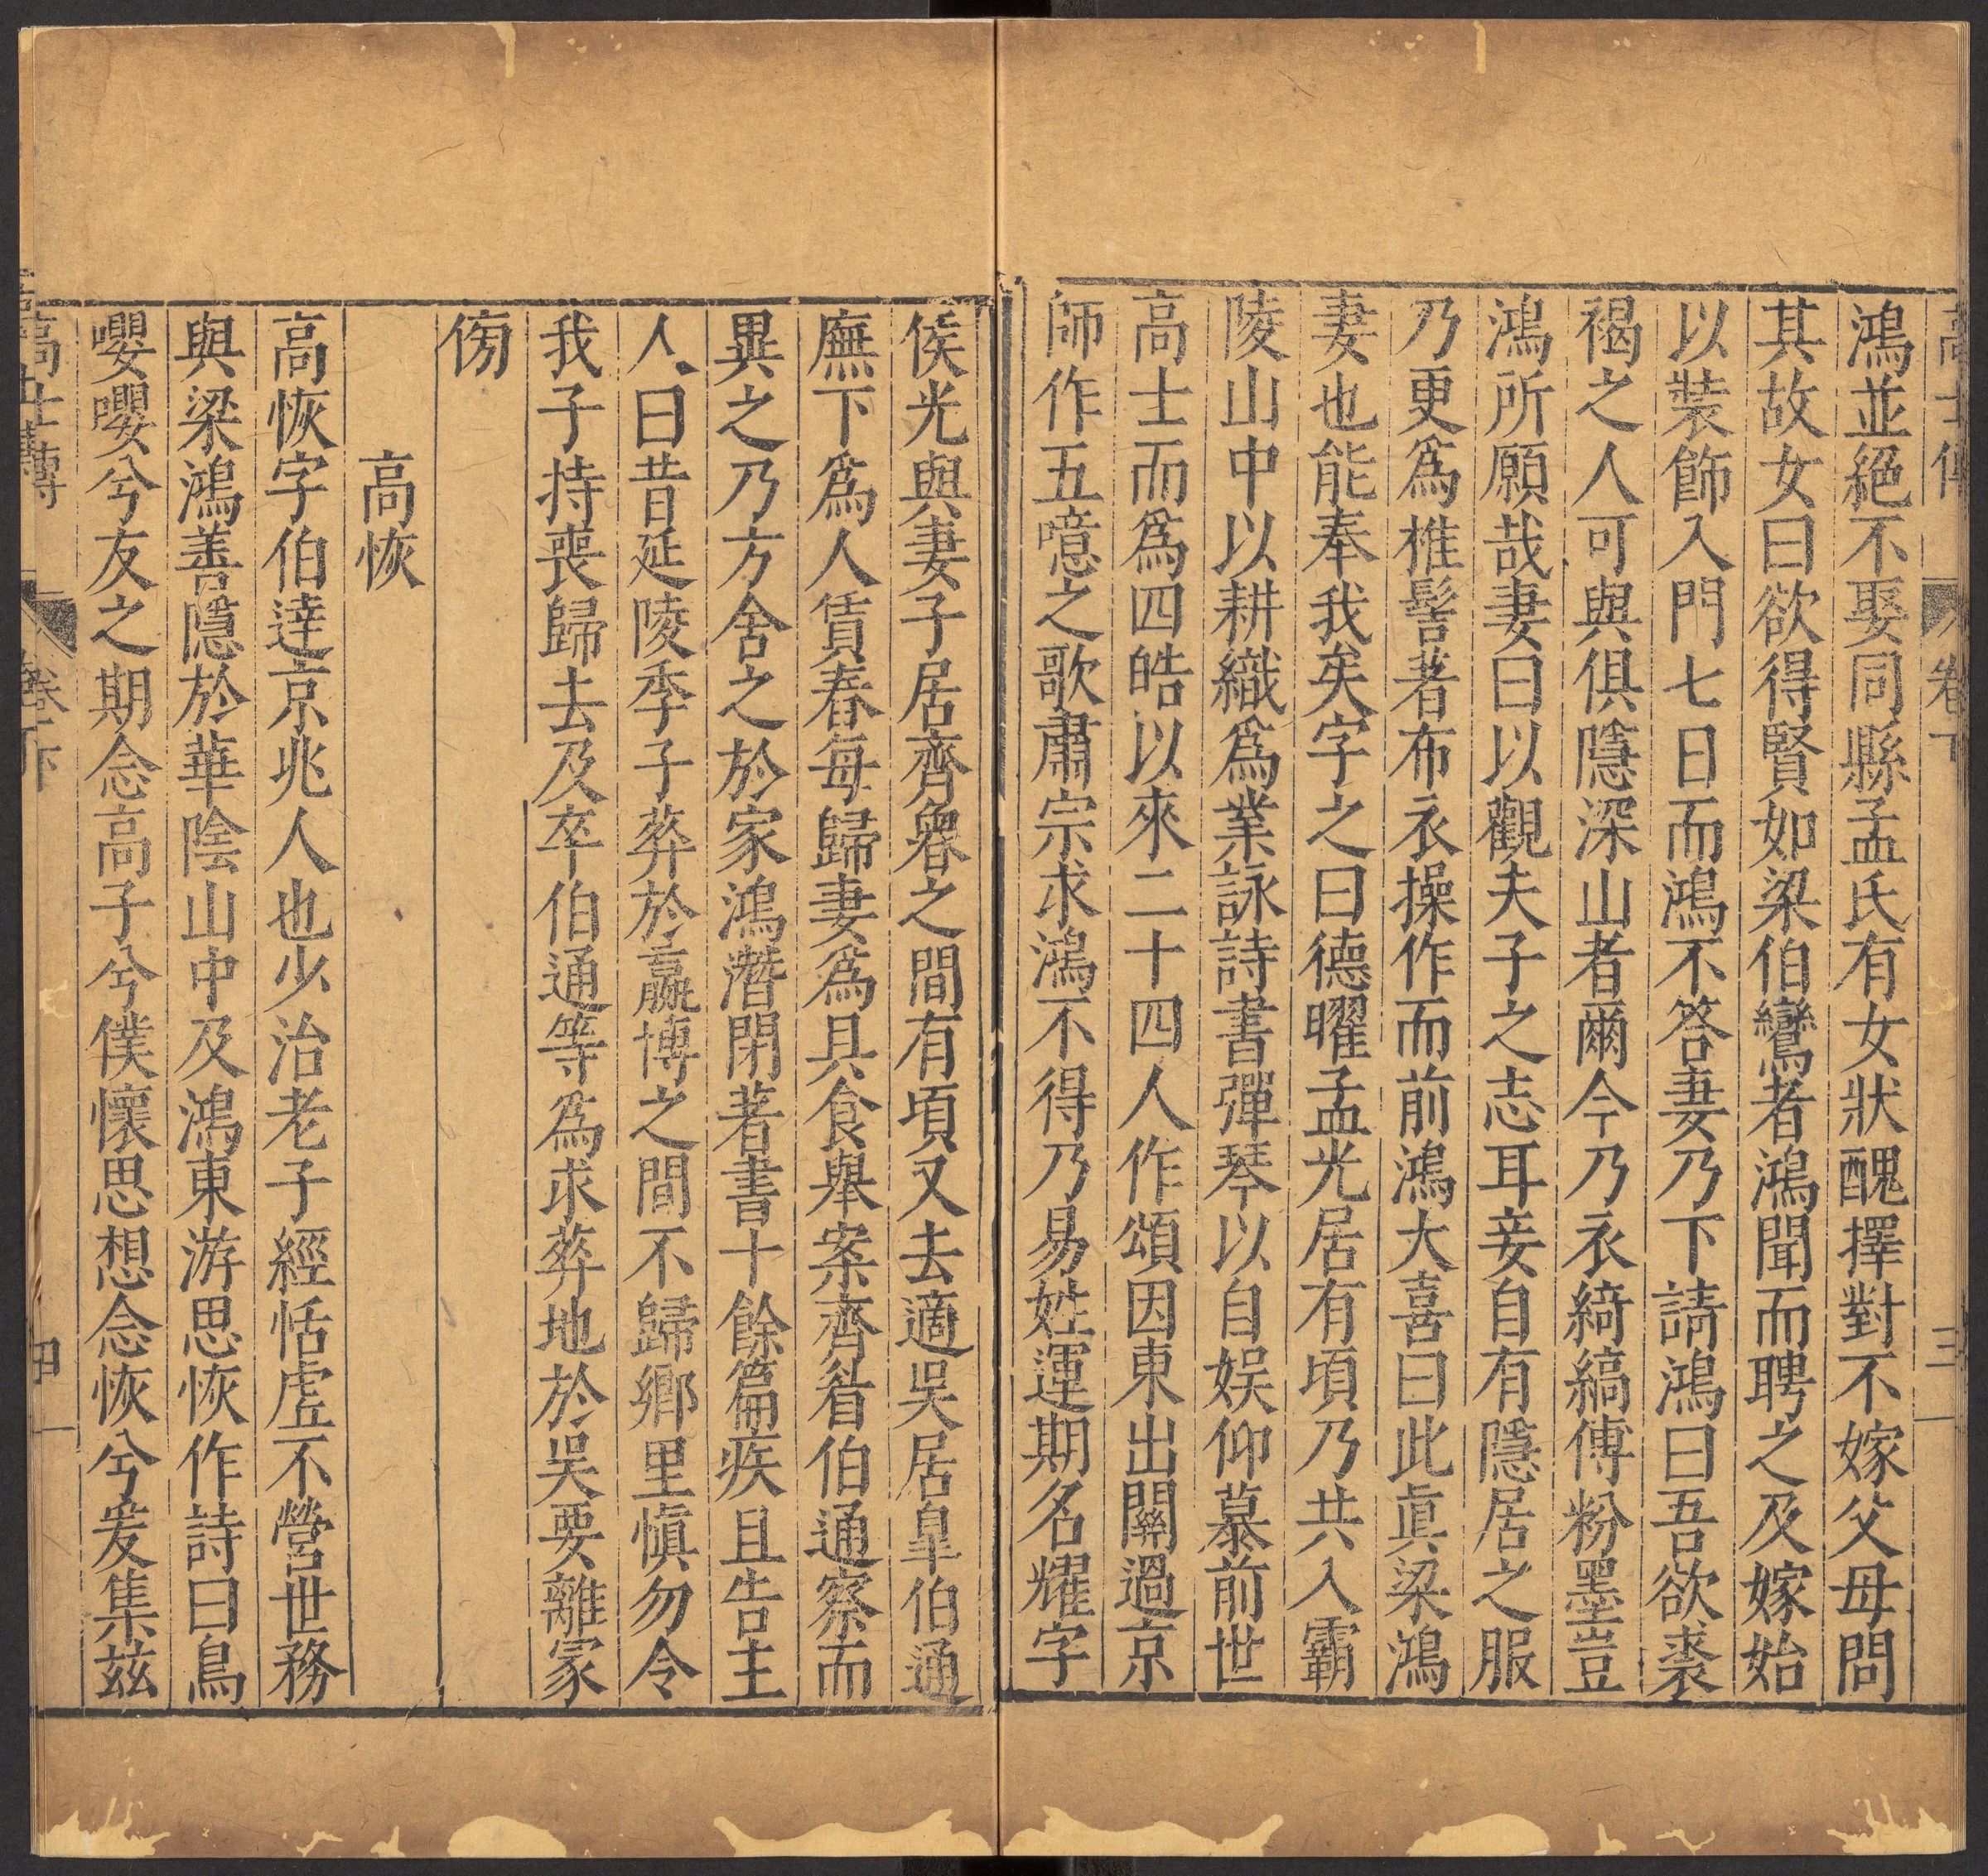 高士傳 卷下 三
鴻並絕不娶同縣孟氏有女狀醜擇對不嫁父母問
其故女曰欲得賢如梁伯鸞者鴻聞而聘之及嫁始
以裝飾入門七日而鴻不答妻乃下請鴻曰吾欲裘
褐之人可與俱隱深山者爾今乃衣綺縞傅粉墨豈
鴻所願哉妻曰以觀夫子之志耳妾自有隱居之服
乃更爲椎髻著布衣操作而前鴻大喜曰此眞梁鴻
妻也能奉我矣字之曰德曜孟光居有頃乃共入霸
陵山中以耕織爲業詠詩書彈琴以自娱仰慕前世
高士而爲四皓以來二十四人作頌因東出關過京
師作五噫之歌肅宗求鴻不得乃易姓運期名燿字
侯光與妻子居齊魯之間有頃又去適吳居臯伯通
廡下爲人賃舂每歸妻爲具食舉案齊眉伯通察而
異之乃方舍之於家鴻潛閉著書十餘篇疾且告主
人曰昔延陵季子葬於嬴博之間不歸鄉里愼勿令
我子持喪歸去及卒伯通等爲求葬地於吳要離冢
傍
高恢
高恢字伯達京兆人也少治老子經恬虛不營世務
與梁鴻善隱於華陰山中及鴻東游思恢作詩曰鳥
嚶嚶兮友之期念高子兮僕懷思想念恢兮爰集兹
高士傳 卷下 四